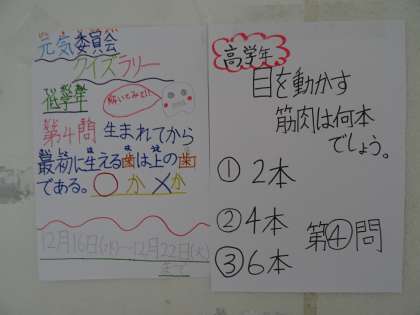 元気委員会
クイズラリー
低学年
解いてみよ!!
第4問 生まれてから
最初に生える歯は上の歯
である。〇か×か
12月16日(水)~12月22日(火)
まで
高学年
目を動かす
筋肉は何本
でしょう。
① 2本
② 4本
③ 6本
第④問